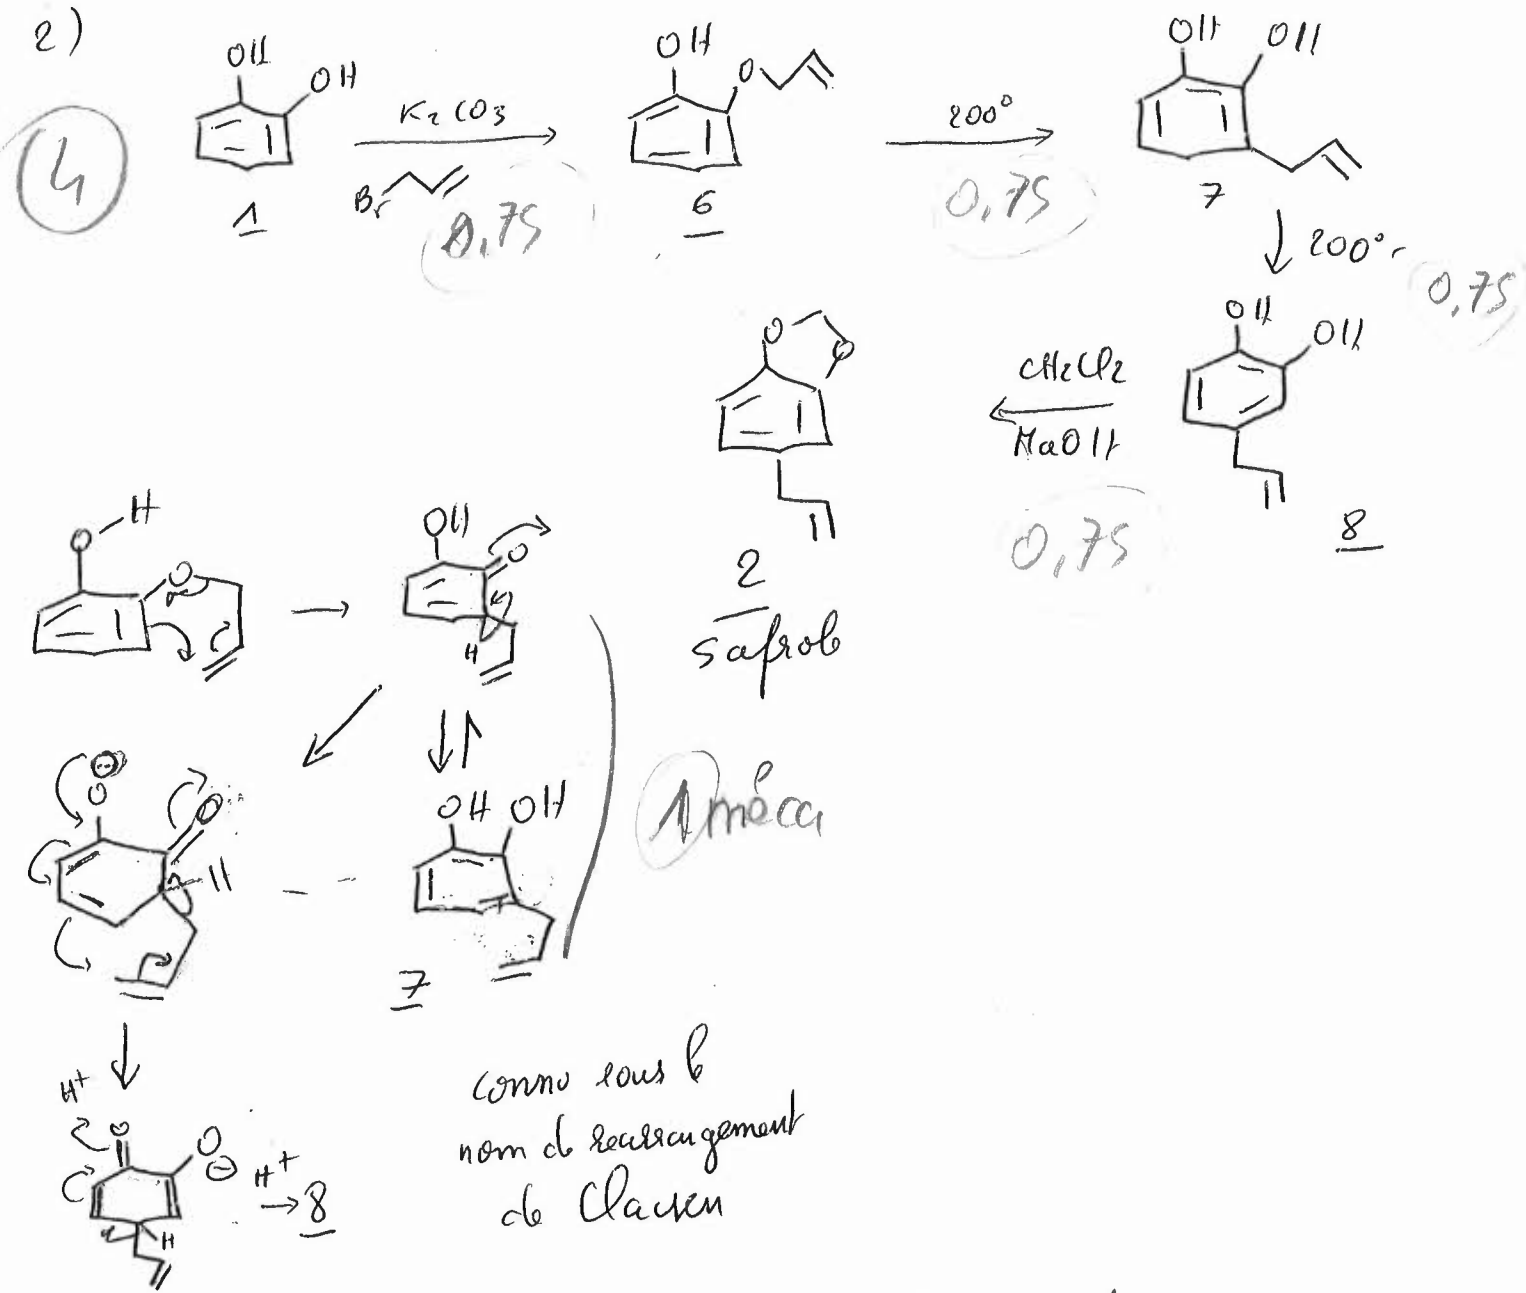 2)
4
OH
OH
K2CO3
Br
0,75
1
OH
O
6
200°
0,75
OH OH
7
200°
0,75
OH
OH
8
CH2Cl2
NaOH
0,75
O
O
2
safrole
O H
O
OH
O
H
⊖
O
O
H
OH OH
7
1 méca
H+
O
O
⊖
H
H+
8
connu sous le
nom de rearrangement
de Claisen